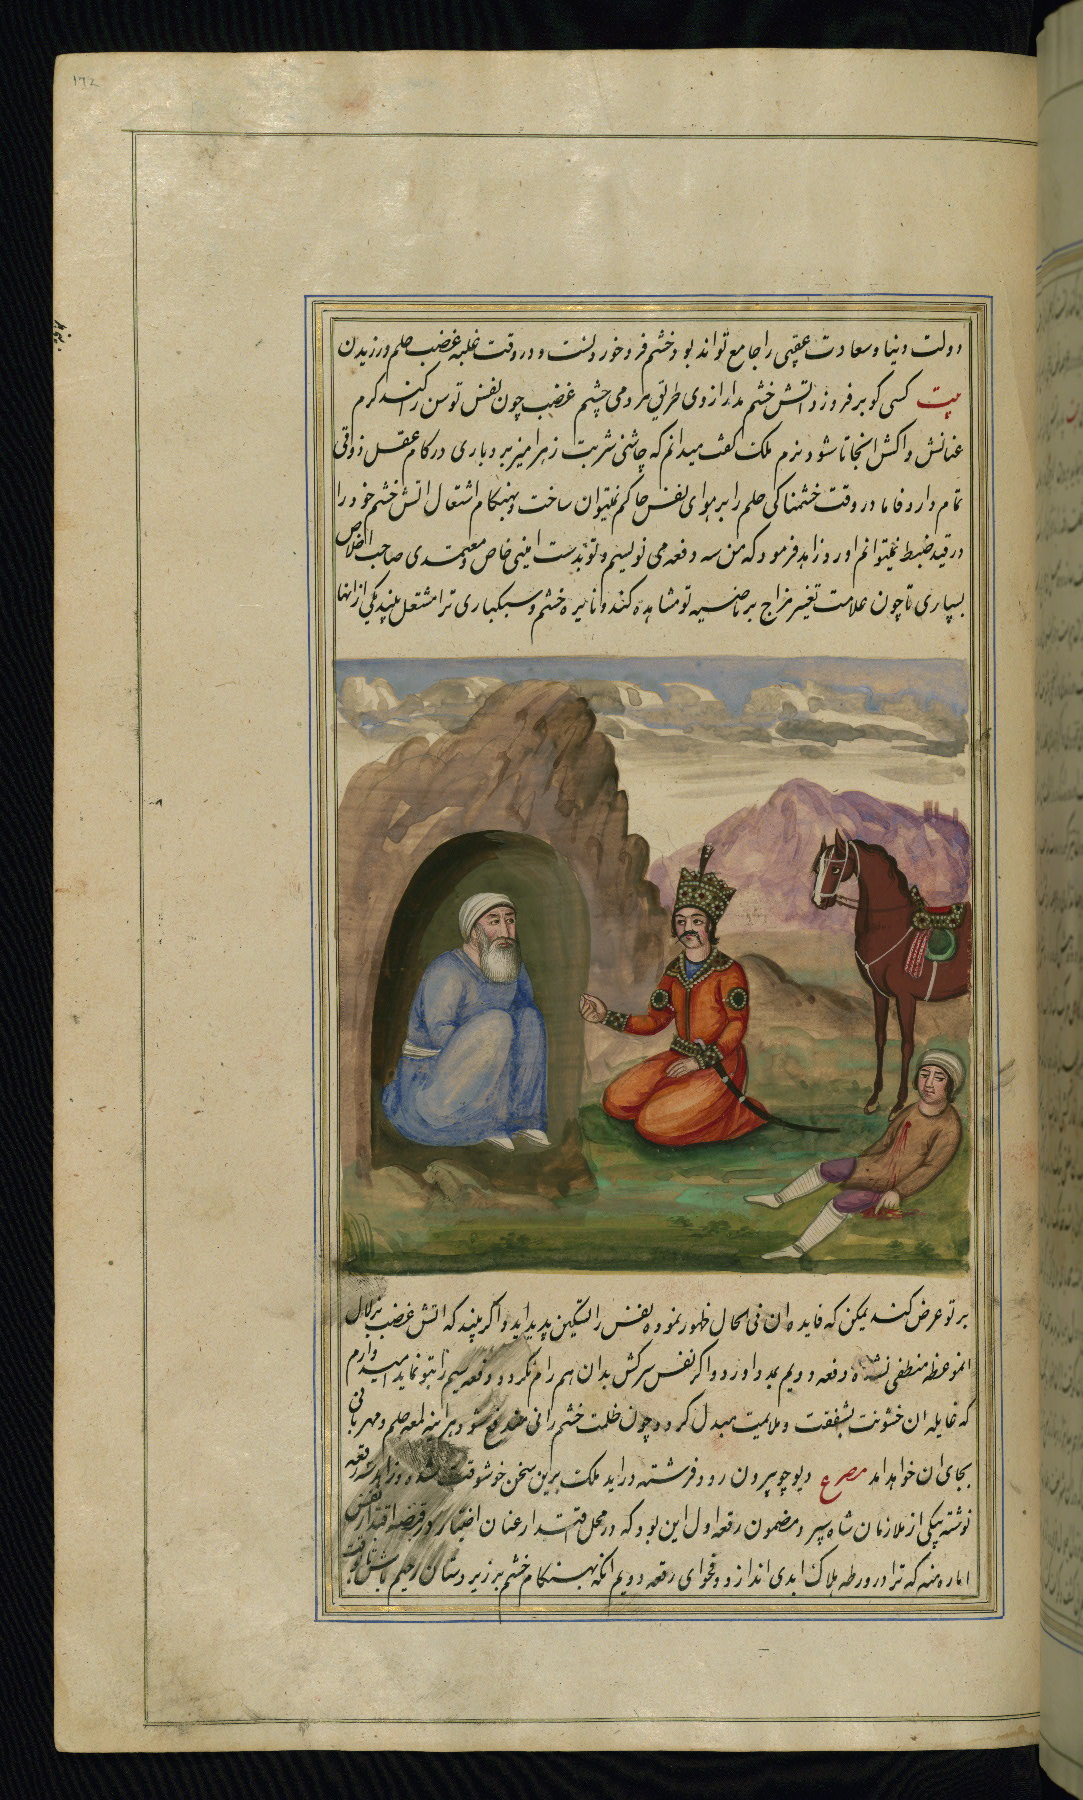 ۱۷۲
دولت دنیا و سعادت عقبی را جامع تواند بود خشم فرو خوردنست و در وقت غلبه غضب حلم ورزیدن
بیت کسی کو بر فروزد اتش خشم مدار از وی طریق مردمی چشم غضب چون نفس توسن را کند کرم
عنانش واکش انجا تا شود نرم ملک کفت میدانم که چاشنی شربت زهر امیز بردباری در کام عقل ذوقی
تمام دارد فاما در وقت خشمناکی حلم را بر هوای نفس حاکم نمیتوان ساخت و بهنکام اشتعال اتش خشم خود را
در قید ضبط نمیتوانم اورد زاهد فرمود که من سه رقعه می نویسم و تو بدست امینی خاص و معتمدی صاحب اخلاص
بسپاری تا چون علامت تغییر مزاج بر ناصیه تو مشاهده کند و نایره خشم و سبکباری ترا مشتعل بیند یکی از انها
بر تو عرض کند یمکن که فایده ان فی الحال ظهور نموده نفس را تسکین پدید اید و اکر بیند که اتش غضب بزلال
ان موعظه منطفی نشده رقعه دویم بمدد اورد و اکر نفس سرکش بدان هم رام نکردد رقعه سیم را بتو نماید امیدوارم
که غایله ان خشونت بشفقت و ملایمت مبدل کردد و چون ظلمت خشم رانی مندفع شود هراینه لمعه حلم و مهربانی
بجای ان خواهد امد مصرع دیو چو بیرون رود فرشته در اید ملک برین سخن خوشوقت شده و زاهد سه رقعه
نوشته بیکی از ملازمان شاه سپرد مضمون رقعه اول این بود که در محل اقتدار عنان اختیار در قبضه اقتدار نفس
اماره منه که ترا در ورطه هلاک ابدی اندازد و فحوای رقعه دویم انکه بهنکام خشم بر زیردستان رحیم باش تا بوقت